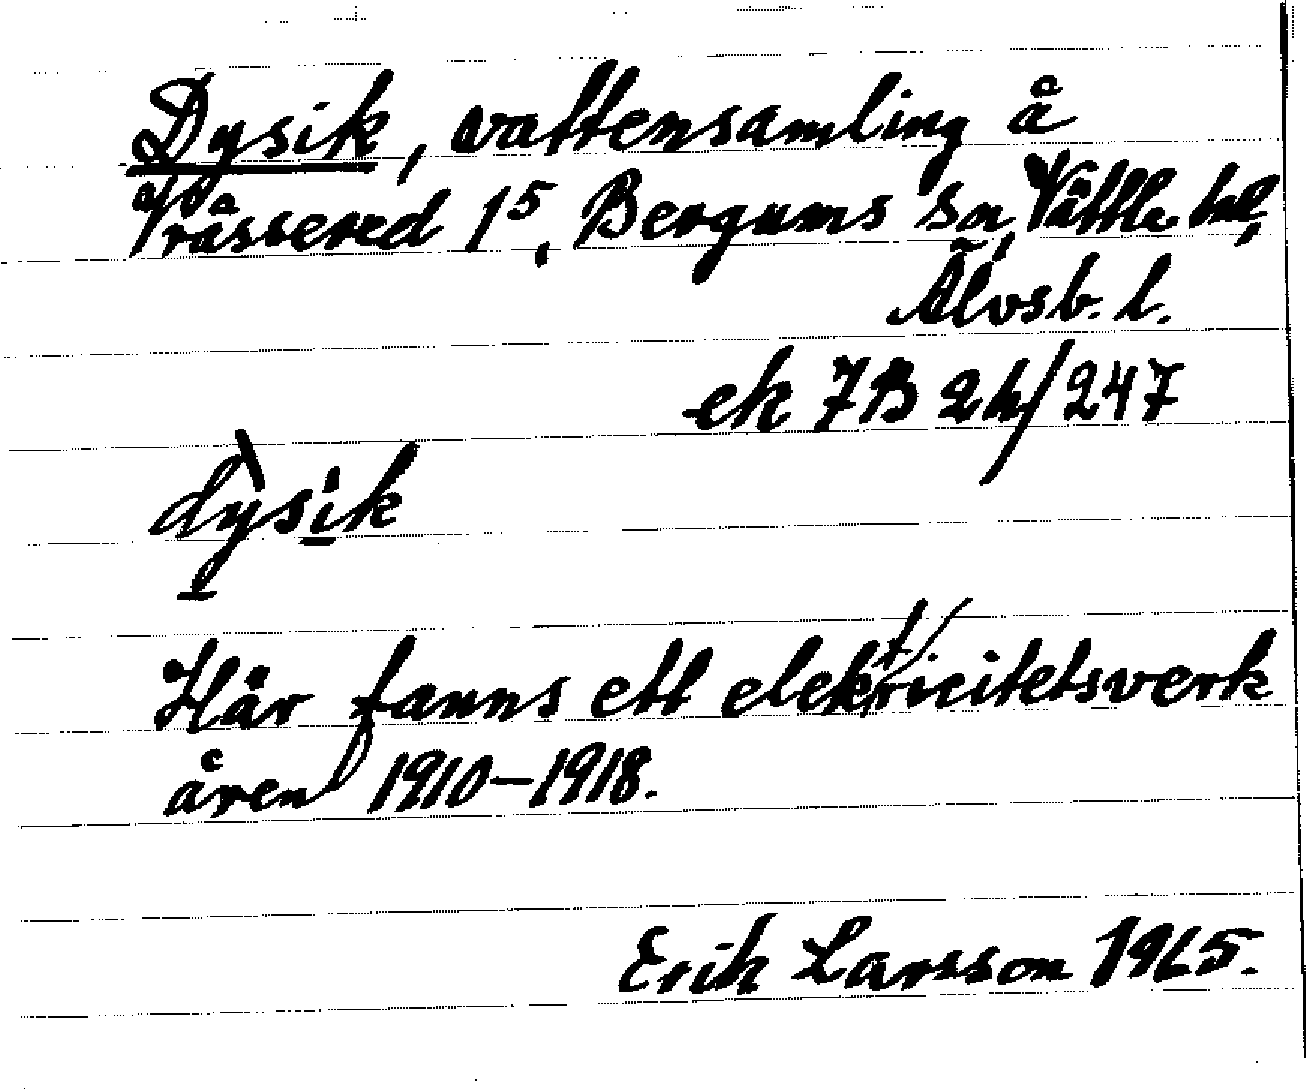 Dysik, vattensamling å
Vråssered 1⁵, Bergums sn, Vättle hd,
Älvsb. l.
ek 7B 2h/247
dỳsik
Här fanns ett elektricitetsverk
åren 1910-1918.
Erik Larsson 1965.